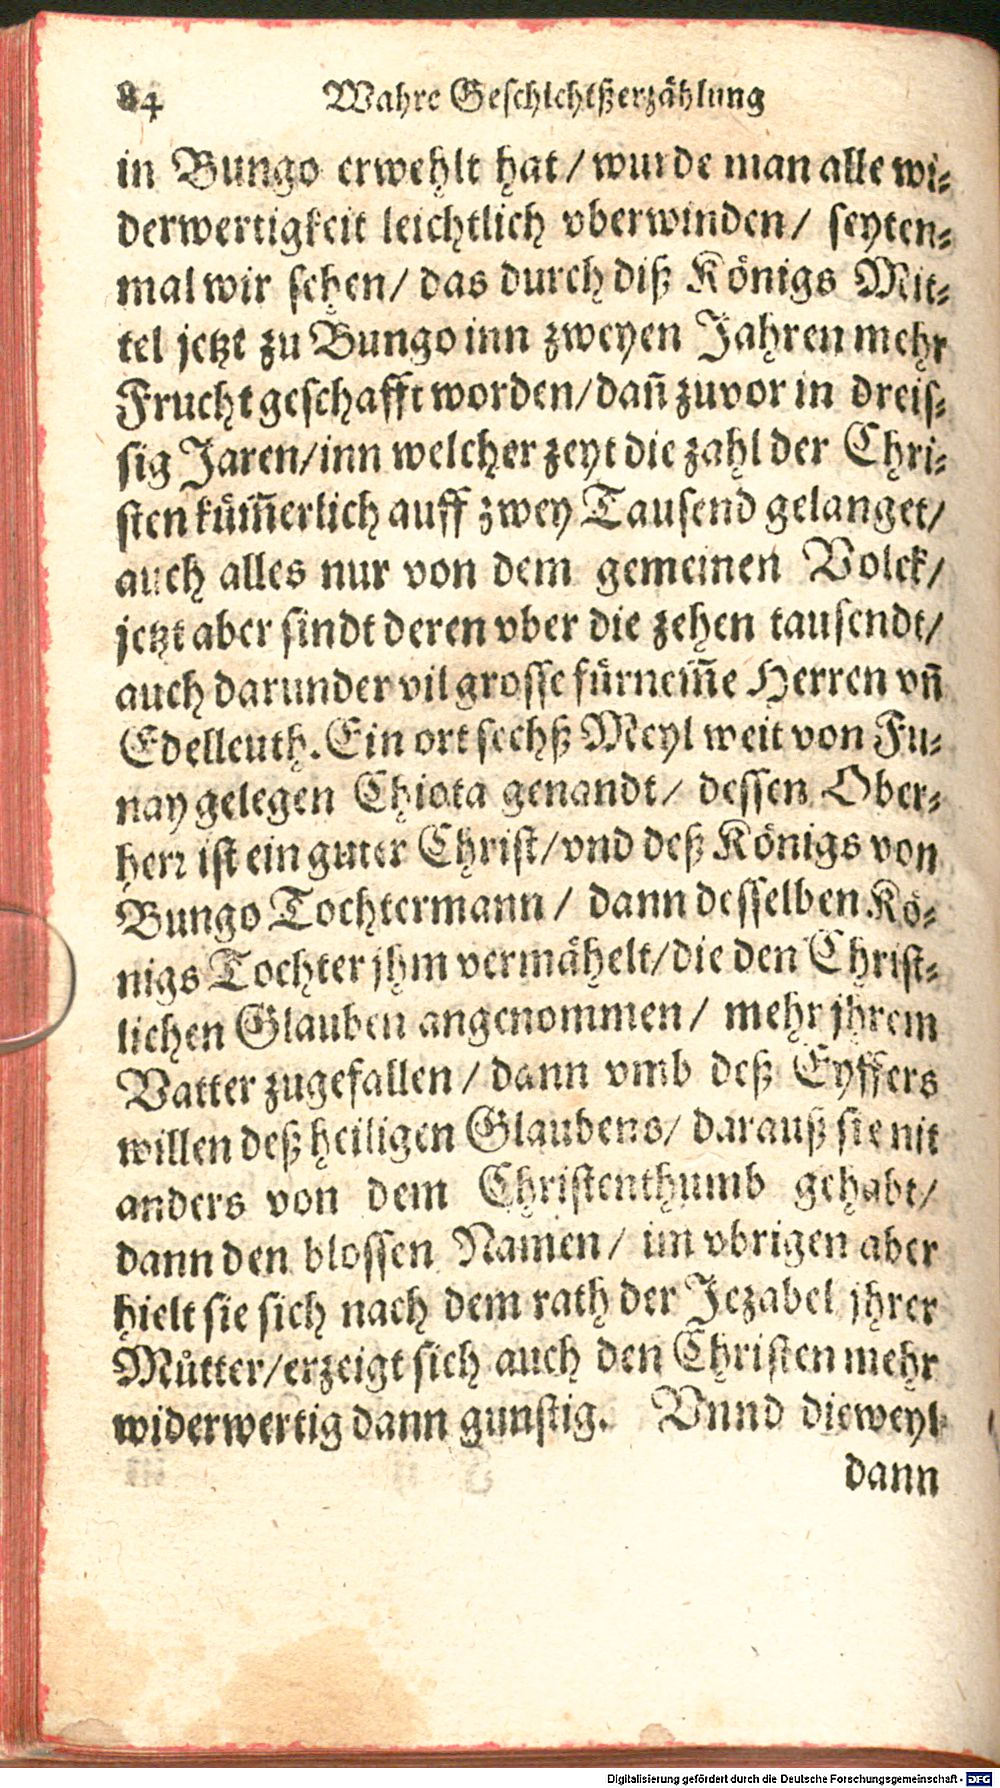 84 Wahre Geschichtßerzählung
in Bungo erwehlt hat / wurde man alle wi-
derwertigkeit leichtlich vberwinden / seyten-
mal wir sehen / das durch diß Königs Mit-
tel jetzt zu Bungo inn zweyen Jahren mehr
Frucht geschafft worden / dañ zuvor in dreis-
sig Jaren / inn welcher zeyt die zahl der Chri-
sten kům̃erlich auff zwey Tausend gelanget /
auch alles nur von dem gemeinen Volck /
jetzt aber sindt deren vber die zehen tausendt /
auch darunder vil grosse fürnem̃e Herren vñ
Edelleuth. Ein ort sechß Meyl weit von Fu-
nay gelegen Chiota genandt / dessen Ober-
herr ist ein guter Christ / vnd deß Königs von
Bungo Tochtermann / dann desselben Kö-
nigs Tochter jhm vermähelt / die den Christ-
lichen Glauben angenommen / mehr jhrem
Vatter zugefallen / dann vmb deß Eyffers
willen deß heiligen Glaubens / darauß sie nit
anders von dem Christenthumb gehabt /
dann den blossen Namen / im vbrigen aber
hielt sie sich nach dem rath der Jezabel jhrer
Můtter / erzeigt sich auch den Christen mehr
widerwertig dann gunstig. Vnnd dieweyl
dann
Digitalisierung gefördert durch die Deutsche Forschungsgemeinschaft - DFG